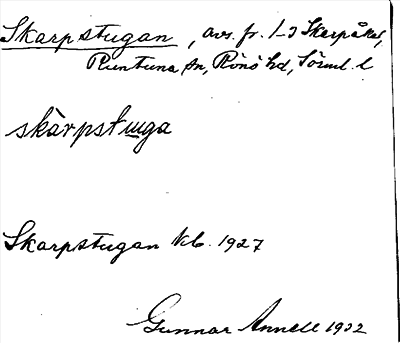 Skarpstugan, avs. fr. 1-3 Skarpåker,
Runtuna sn, Rönö hd, Söml. l
skàrpstɯga
Skarpstugan kb. 1927
Gunnar Annell 1932